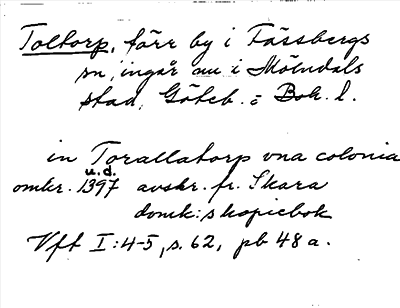 Toltorp, förr by i Fässbergs
sn, ingår nu i Mölndals
stad, Göteb. = Boh. l.
in Torallatorp vna colonia
u.d.
omkr. 1397 avskr. fr. Skara
domk:s kopiebok
Vft I:4-5, s. 62, pb 48 a.